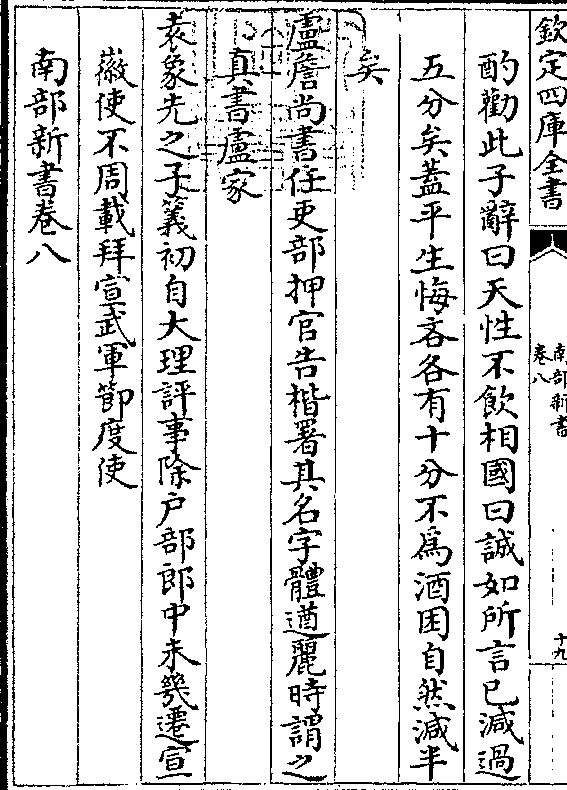 欽定四庫全書
南部新書
卷八
十九
酌勸此子辭曰天性不飲相國曰誠如所言已減過
五分矣蓋平生悔吝各有十分不為酒困自然減半
矣
盧詹尚書任吏部押官告楷署其名字體遒麗時謂之
真書盧家
袁象先之子義初自大理評事除户部郎中未幾遷宣
徽使不周載拜宣武軍節度使
南部新書卷八